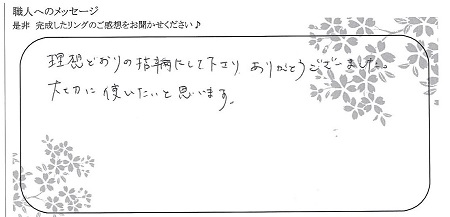 職人へのメッセージ
是非 完成したリングのご感想をお聞かせください♪
理想どおりの指輪にして下さり ありがとうございました。
大切に使いたいと思います。